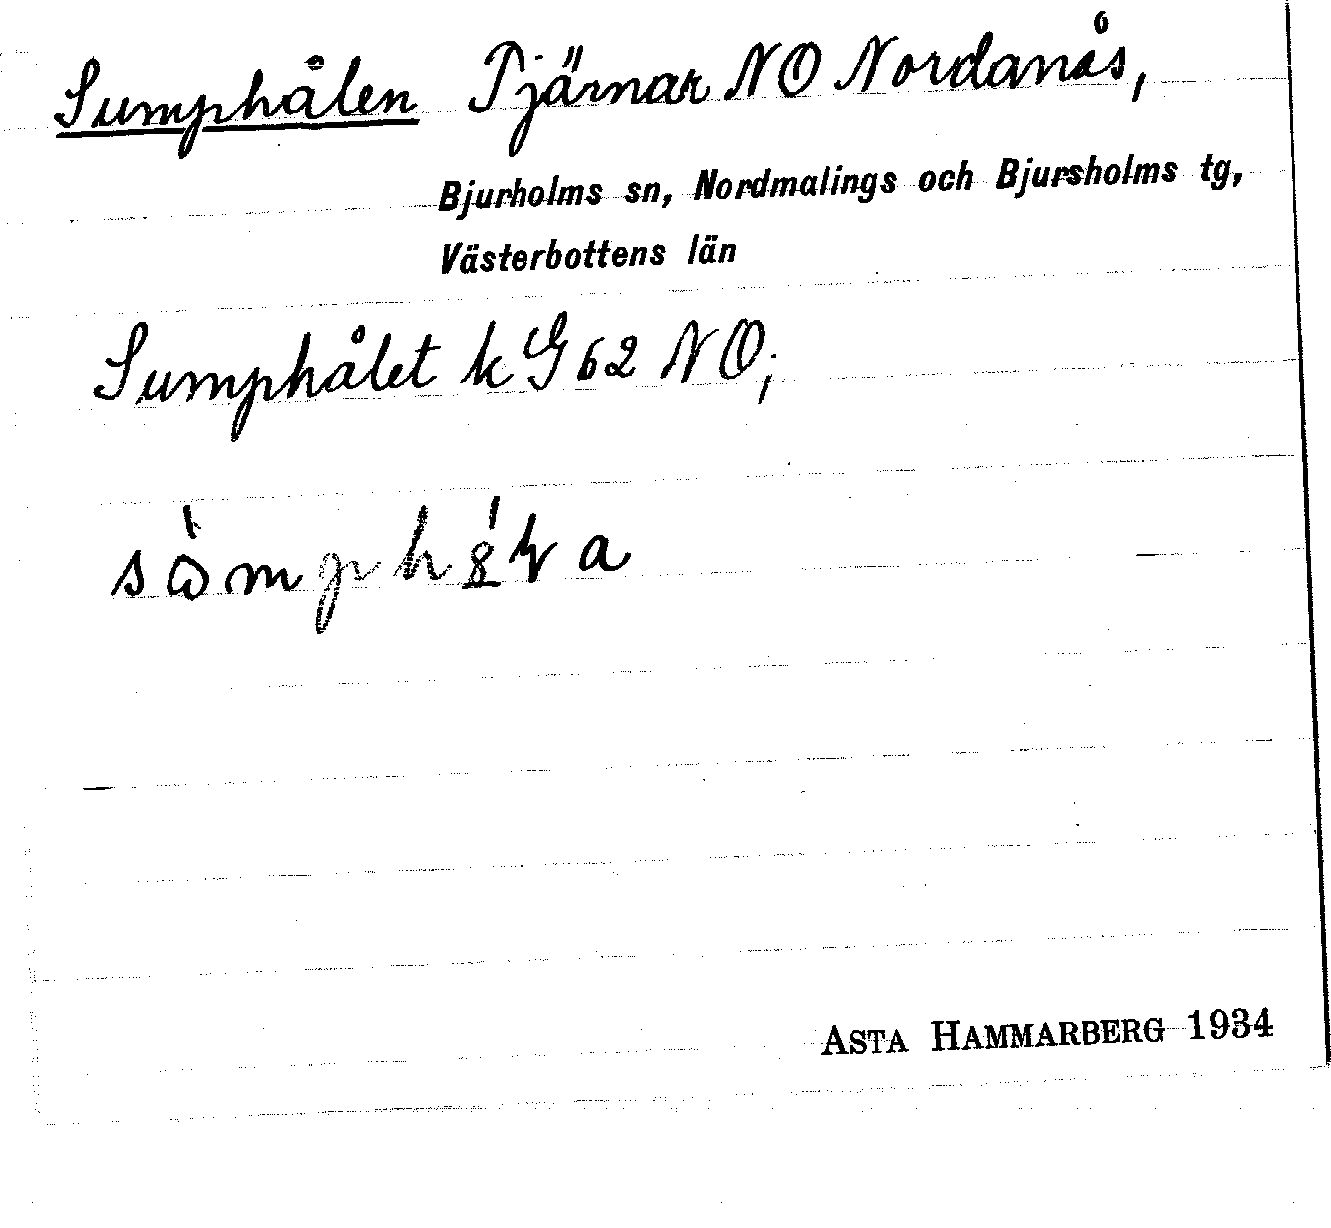 Sumphålen Tjärnar NO Nordanås,
Bjurholms sn, Nordmalings och Bjursholms tg,
Västerbottens län
Sumphålet k G 62 NO;
Asta Hammarberg 1934